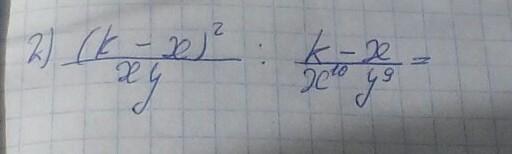 2) (k - x)² / xy : k - x / x¹⁰ y⁹ =